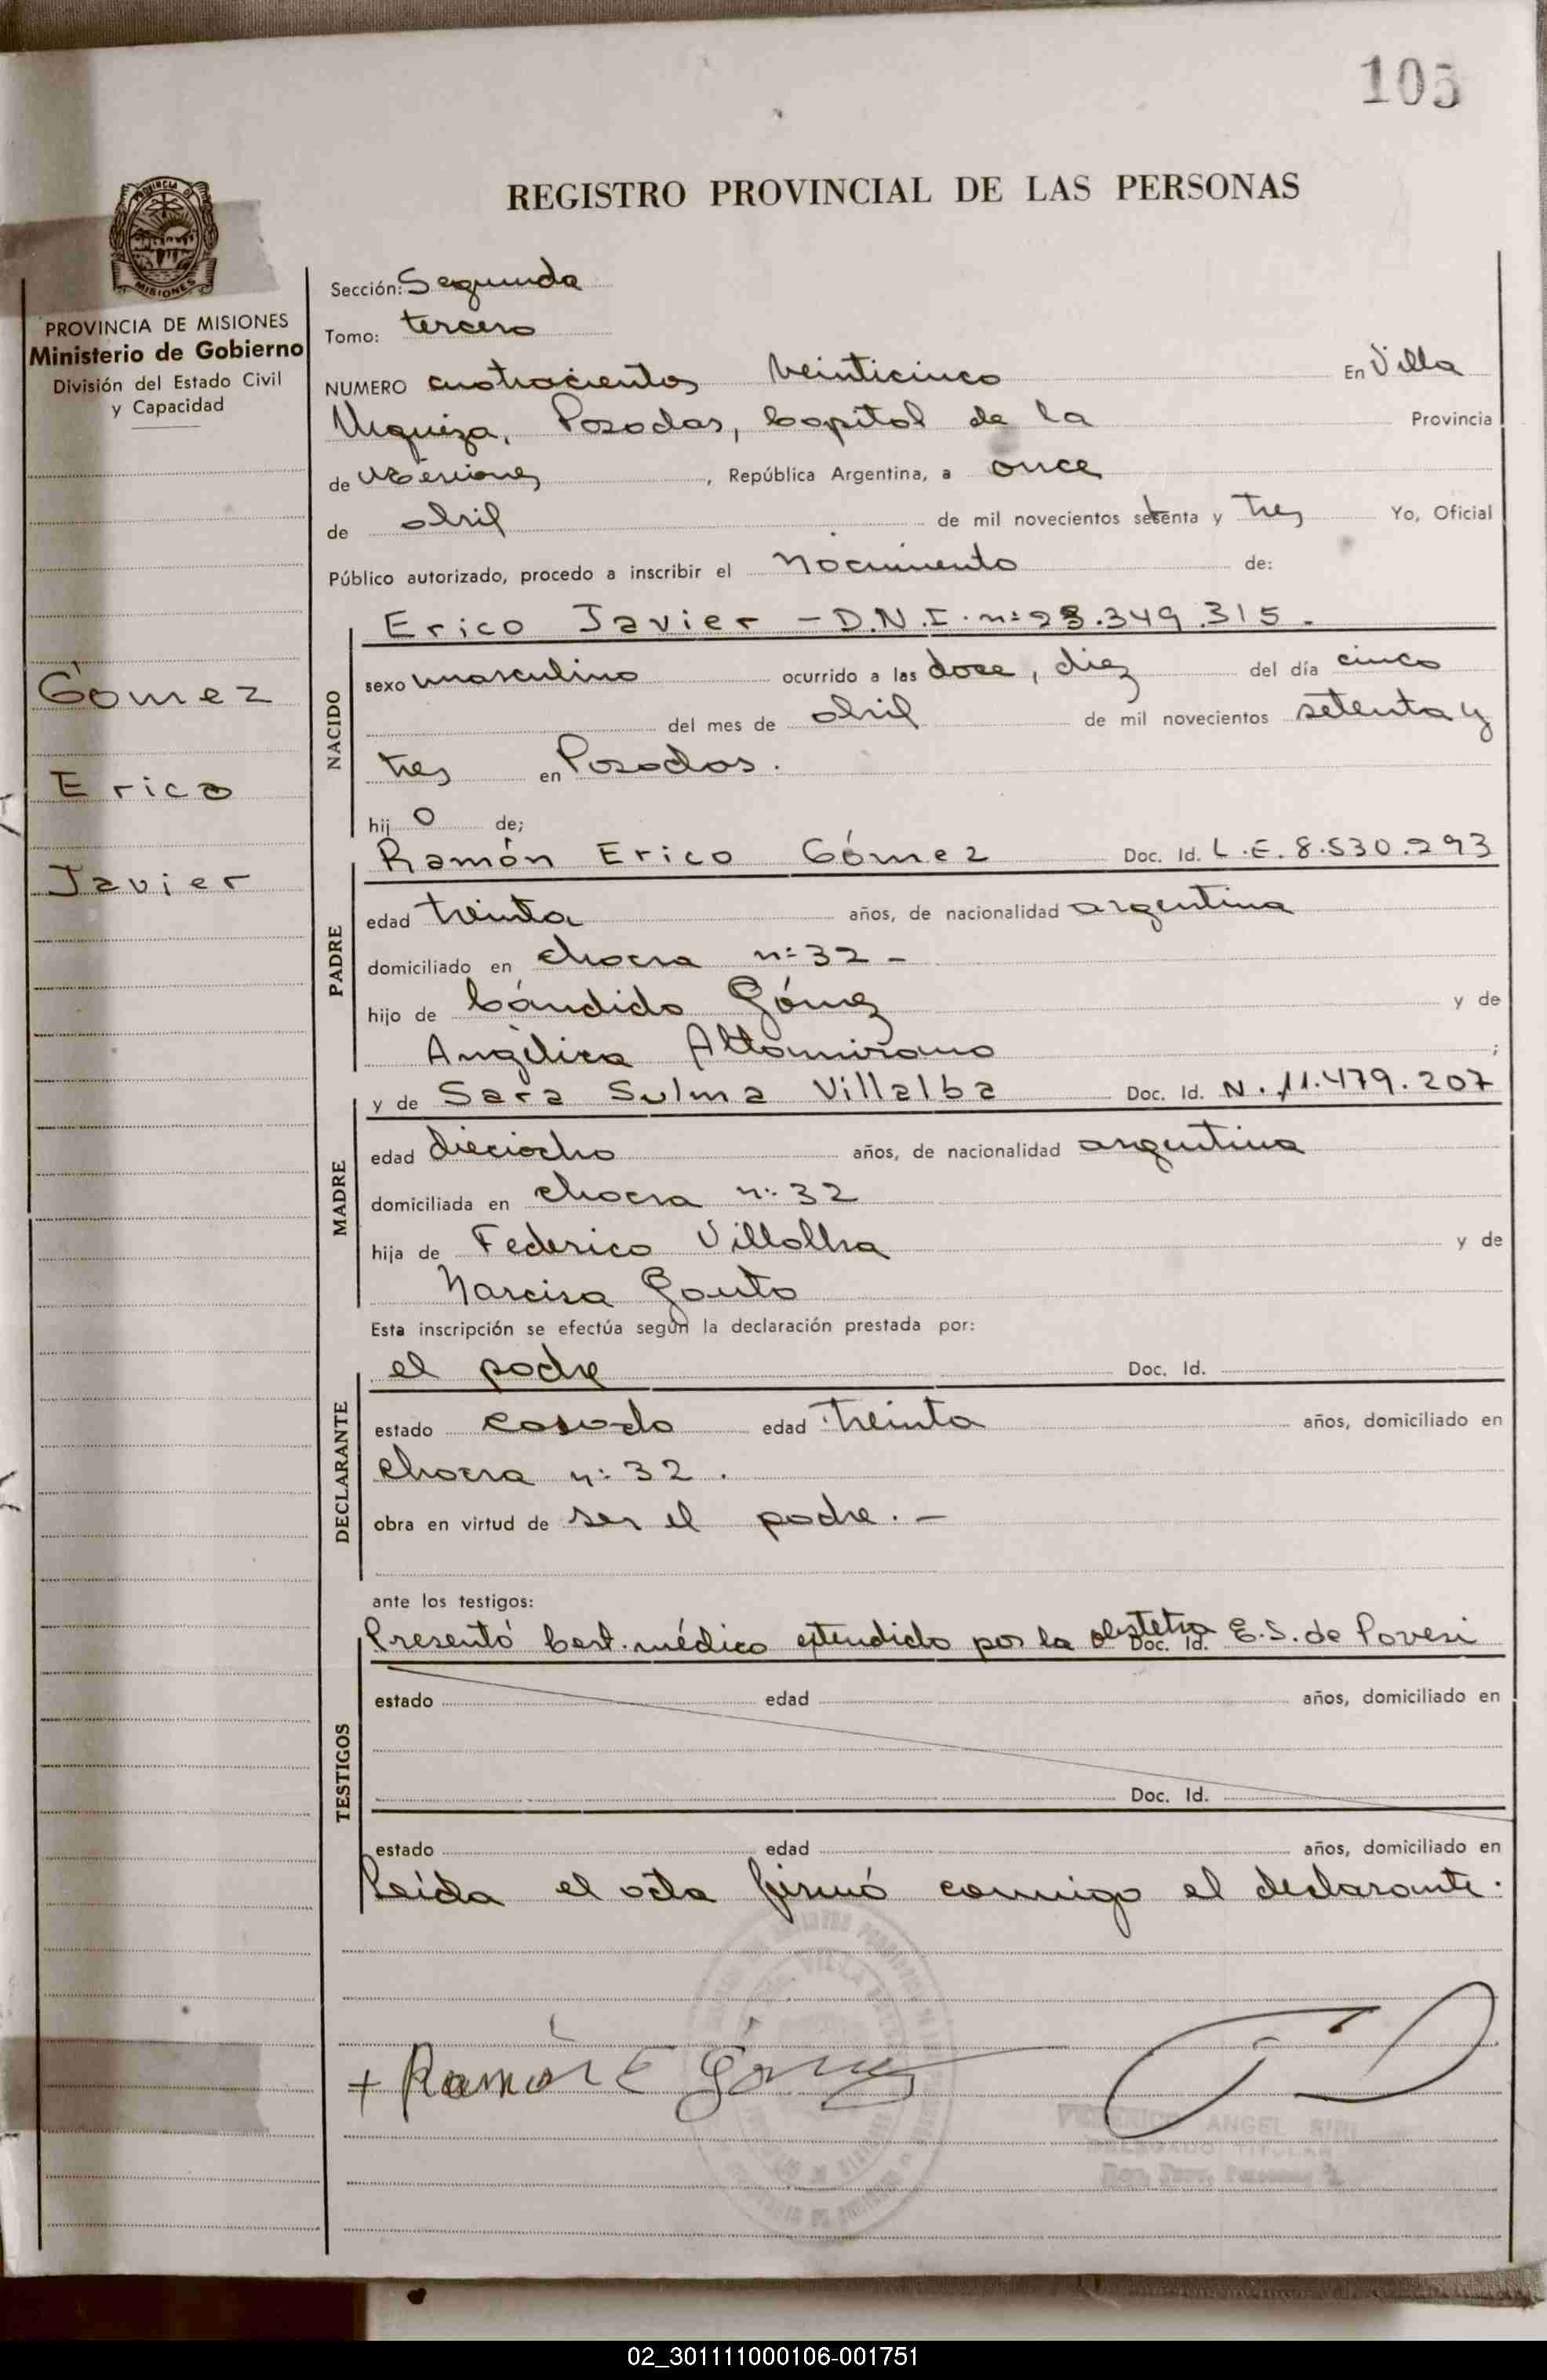 105
REGISTRO PROVINCIAL DE LAS PERSONAS
MISIONES
PROVINCIA DE MISIONES
Ministerio de Gobierno
División del Estado Civil
y Capacidad
Gómez
Erico
Javier
Sección: Segunda
Tomo: tercero
NUMERO cuatrocientos veinticinco En Villa
Urquiza, Posadas, Capital de la Provincia
de Misiones, República Argentina, a once
de abril de mil novecientos setenta y tres Yo, Oficial
Público autorizado, procedo a inscribir el Nacimiento de:
NACIDO
Erico Javier - D.N.I. nº 23.349.315.
sexo masculino ocurrido a las doce, diez del día cinco
del mes de abril de mil novecientos setenta y
tres en Posadas.
hij o de;
PADRE
Ramón Erico Gómez Doc. Id. L.E. 8.530.293
edad treinta años, de nacionalidad argentina
domiciliado en chacra nº 32 -
hijo de Cándido Gómez y de
Angélica Altamirano ;
MADRE
y de Sara Sulma Villalba Doc. Id. N. 11.479.207
edad dieciocho años, de nacionalidad argentina
domiciliada en chacra nº 32
hija de Federico Villalba y de
Narcisa Gauto
Esta inscripción se efectúa según la declaración prestada por:
DECLARANTE
el padre Doc. Id.
estado casado edad treinta años, domiciliado en
chacra nº 32.
obra en virtud de ser el padre. -
ante los testigos:
TESTIGOS
Presentó Cert. médico extendido por la obstetra Doc. Id. E.S. de Povesi
estado edad años, domiciliado en
Doc. Id.
estado edad años, domiciliado en
Leída el acta firmó conmigo el declarante.
+ Ramón E Gómez
ANGEL
DELEGADO TITULAR
02_301111000106-001751